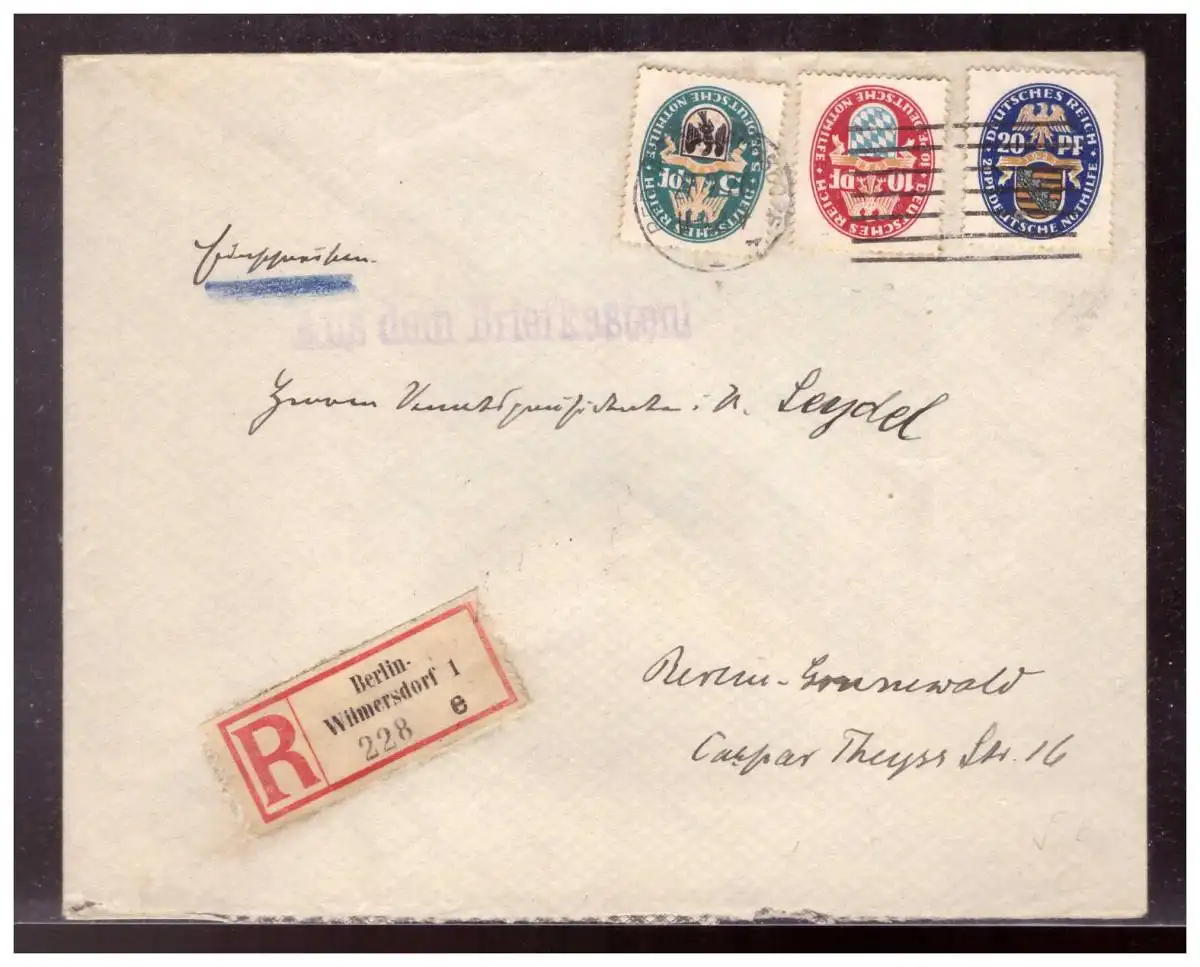 DEUTSCHES REICH · 5 PF · DEUTSCHE NOTHILFE
5 PF
DEUTSCHES REICH · 10 PF · DEUTSCHE NOTHILFE
10 PF
DEUTSCHES REICH · 20 PF · DEUTSCHE NOTHILFE
20 PF
Einschreiben.
Aus dem Briefkasten
Herrn Senatspräsidenten i. R. Seydel
R
Berlin-
Wilmersdorf 1
228 e
Berlin-Grunewald
Caspar Theyss Str. 16